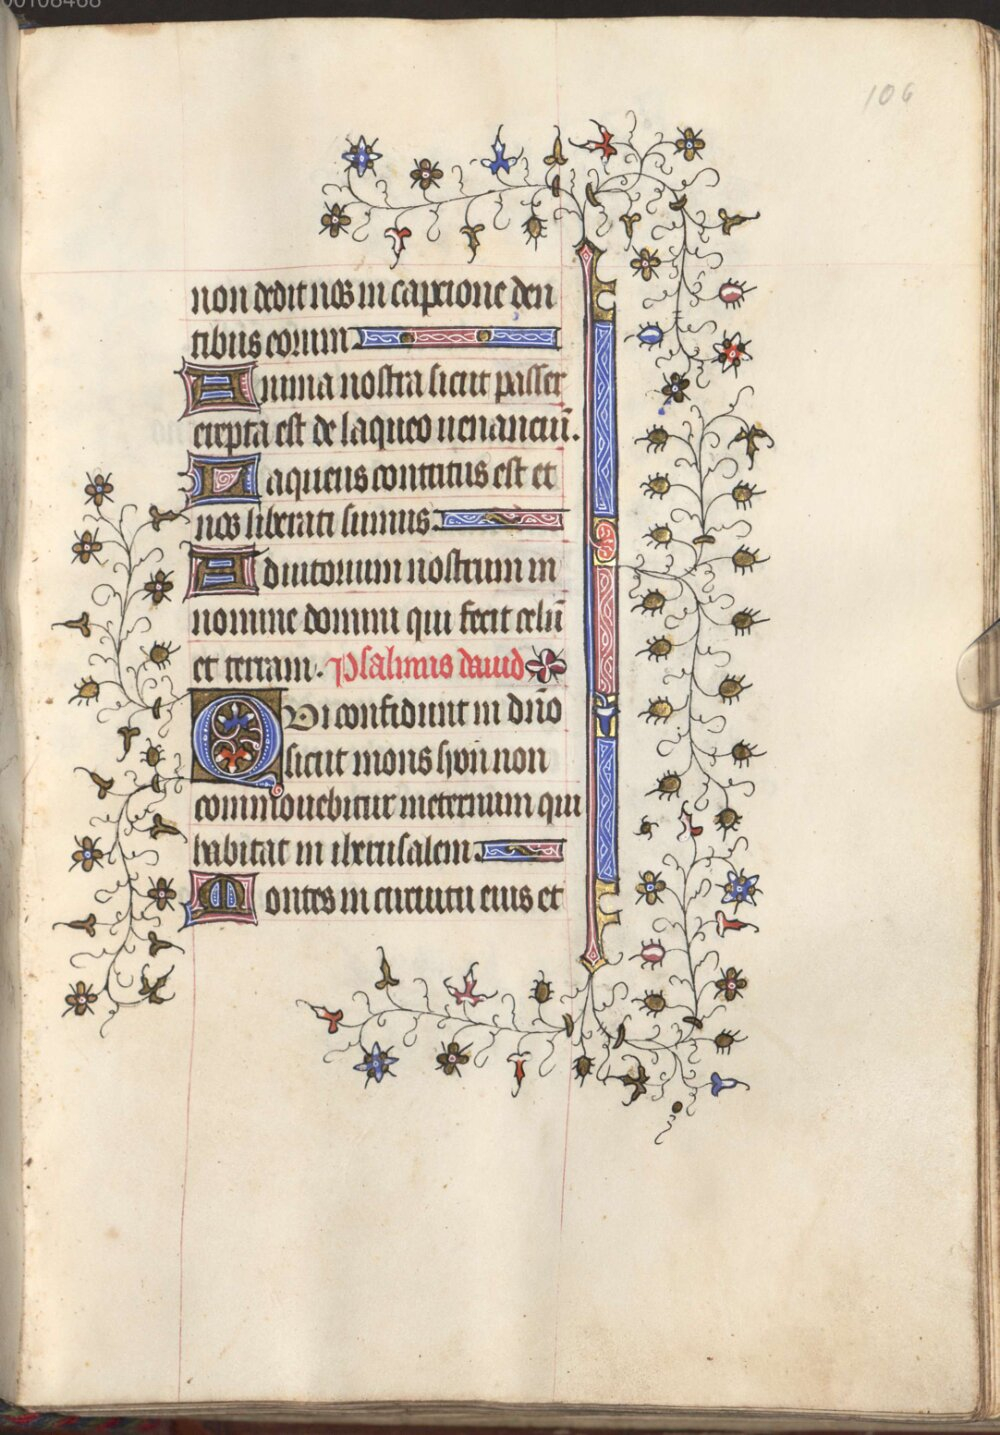 00108468
106
non dedit nos in capcione den
tibus eorum
Anima nostra sicut passer
erepta est de laqueo uenanciū.
Laqueus contritus est et
nos liberati sumus.
Adiutorium nostrum in
nomine domini qui fecit celū
et terram. Psalmus dauid
Qvi confidunt in dn̄o
sicut mons syon non
commouebitur ineternum qui
habitat in iherusalem.
Montes in circuitu eius et